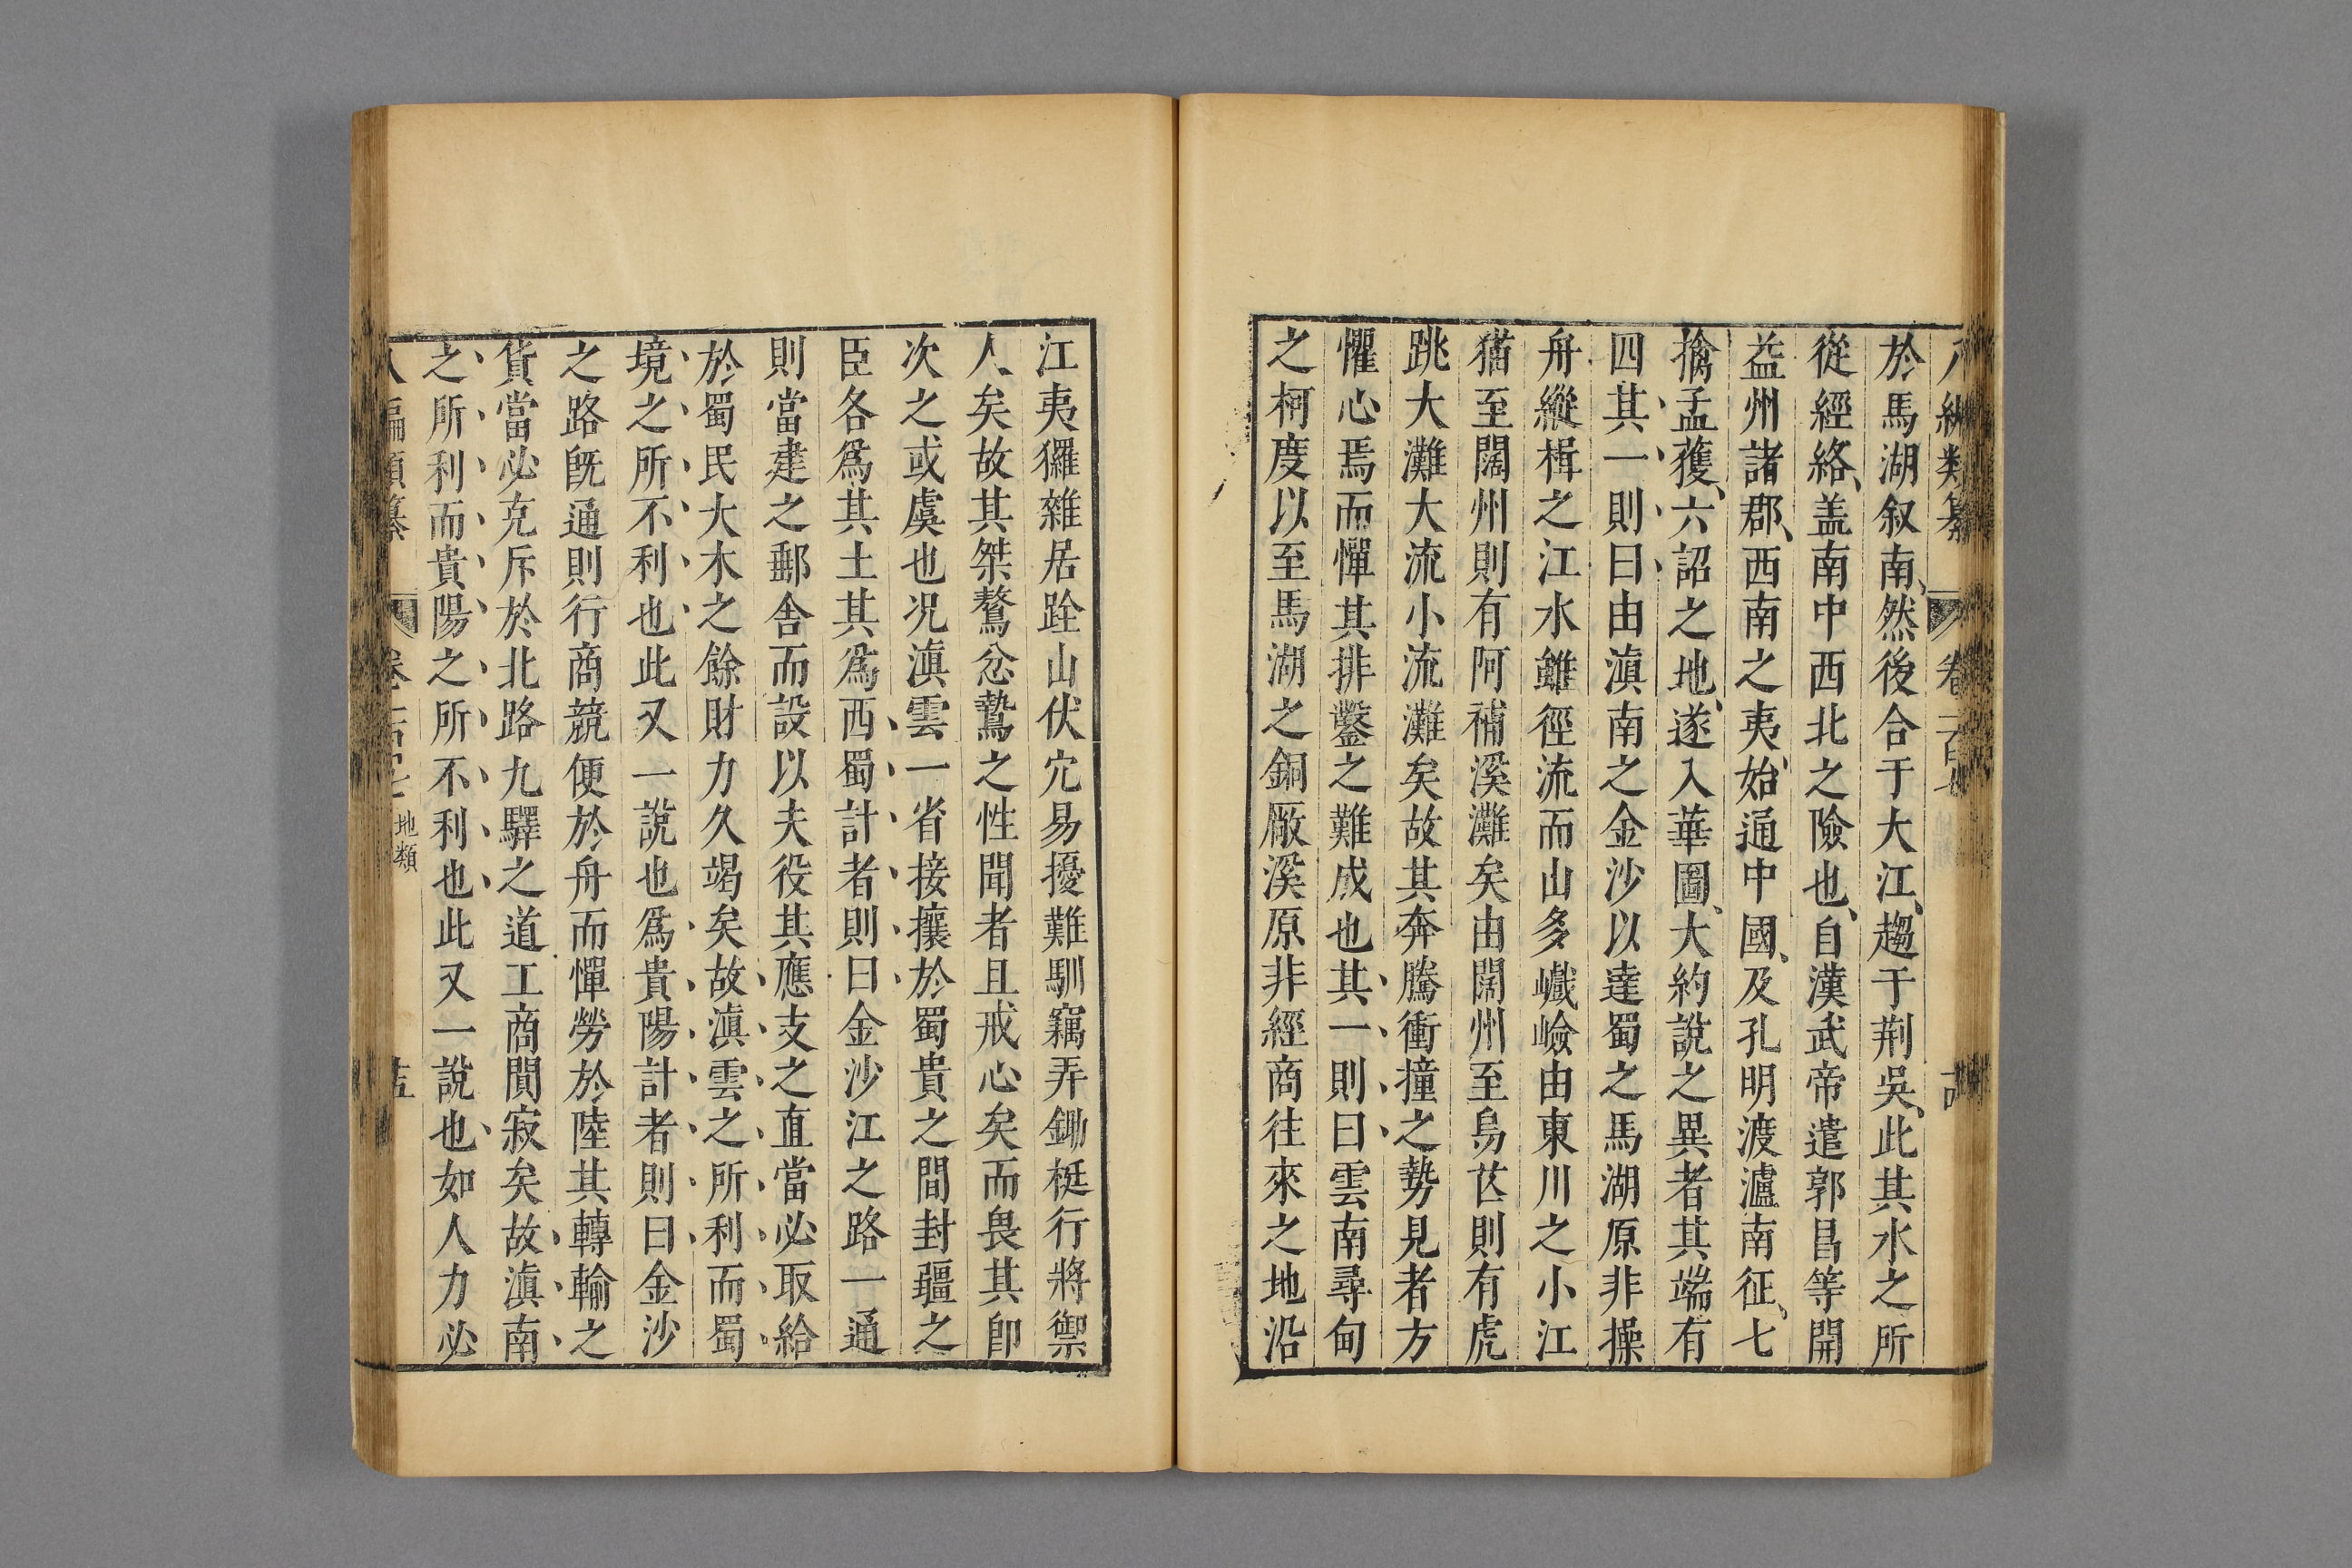 於馬湖叙南、然後合于大江、趨于荆吳、此其水之所
從經絡、盖南中西北之險也、自漢武帝遣郭昌等開
益州諸郡、西南之夷、始通中國、及孔明渡瀘南征、七
擒孟獲、六詔之地、遂入華圖、大約說之異者其端有
四其一則曰由滇南之金沙以達蜀之馬湖原非操
舟縱楫之江水雖徑流而山多巇嶮由東川之小江
猶至闊州則有阿補溪灘矣由闊州至易苉則有虎
跳大灘大流小流灘矣故其奔騰衝撞之勢見者方
懼心焉而憚其排鑿之難成也其一則曰雲南尋甸
之柯度以至馬湖之銅厰溪原非經商往來之地沿
江夷玀雜居跧山伏穴易擾難馴竊弄鋤梃行將禦
人矣故其桀驁忿鷙之性聞者且戒心矣而畏其卽
次之或虞也况滇雲一省接攘於蜀貴之間封疆之
臣各爲其土其爲西蜀計者則曰金沙江之路一通
則當建之郵舎而設以夫役其應支之直當必取給
於蜀民大木之餘財力久竭矣故滇雲之所利而蜀
境之所不利也此又一說也爲貴陽計者則曰金沙
之路旣通則行商競便於舟而憚勞於陸其轉輸之
貨當必充斥於北路九驛之道工商閴寂矣故滇南
之所利而貴陽之所不利也此又一說也如人力必
地類